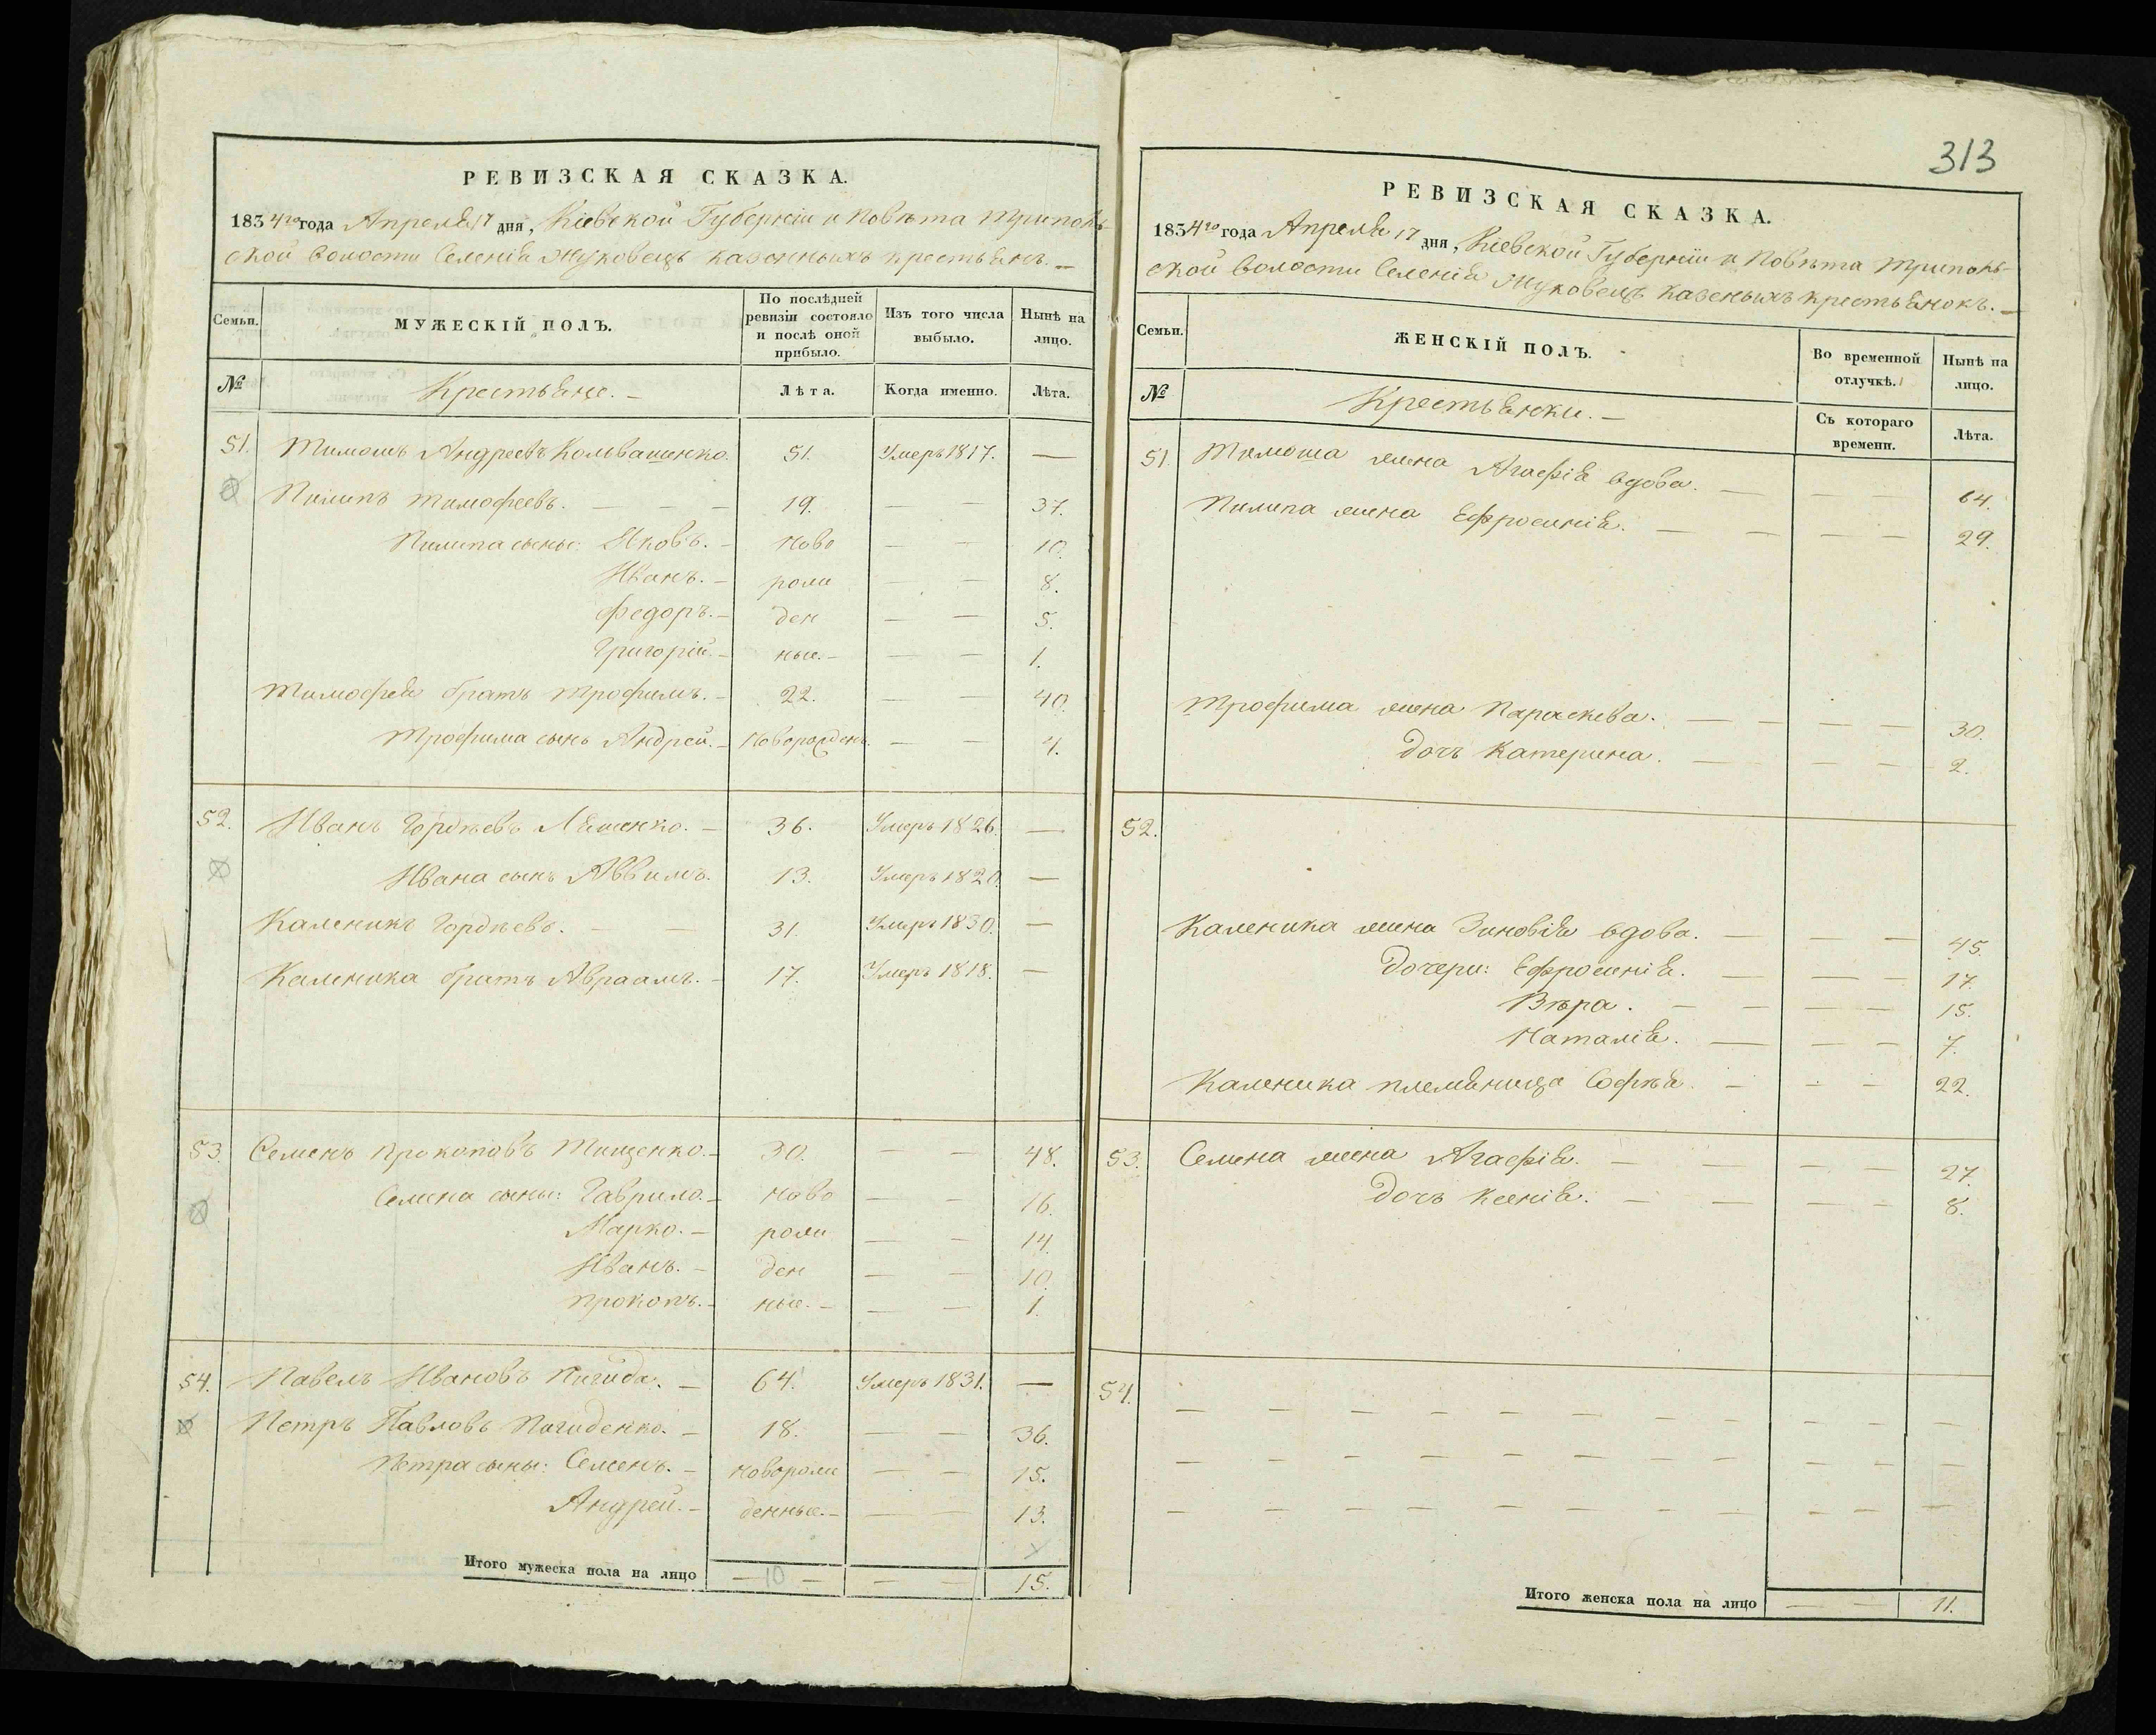 РЕВИЗСКАЯ СКАЗКА.
1834го года Апреля 17 дня, Кіевской Губерніи и Повѣта Триполь-
ской волости Селенія Жуковецъ казенныхъ крестьянъ.
Семьи. МУЖЕСКІЙ ПОЛЪ. По послѣдней ревизіи состояло и послѣ оной прибыло. Изъ того числа выбыло. Нынѣ на лицо.
№ Крестьяне. Лѣта. Когда именно. Лѣта.
51. Тимошъ Андреевъ 51. Умеръ 1817. —
Пилипъ Тимофеевъ. — — — 19. — — 37.
Пилипа сыны: Яковъ. — Ново — — 10.
Иванъ. — рож — — 8.
Федоръ. — ден — — 5.
Григорій. — ные. — — — 1.
Тимофея братъ Трофимъ. — 22. — — 40.
Трофима сынъ Андрей. — Новорожденъ. — — 4.
52. Иванъ Гордѣевъ Ляшенко. — 36. Умеръ 1826. —
Ивана сынъ 13. Умеръ 1820. —
Каленикъ Гордѣевъ. — — 31. Умеръ 1830. —
Каленика братъ Авраамъ. — 17. Умеръ 1818. —
53. Семенъ Прокоповъ Тищенко. — 30. — — 48.
Семена сыны: Гаврило. — Ново — — 16.
Марко. — рож — — 14.
Иванъ. — ден — — 10.
Прокопъ. — ные. — — — 1.
54. Павелъ Ивановъ — 64. Умеръ 1831. —
Петръ Павловъ — 18. — — 36.
Петра сыны: Семенъ. — Оноворож — — 15.
Андрей. — денные. — — — 13.
Итого мужеска пола на лицо — 10 — — — 15.
313
РЕВИЗСКАЯ СКАЗКА.
1834го года Апреля 17 дня, Кіевской Губерніи и Повѣта Триполь-
ской волости Селенія Жуковецъ казеныхъ крестьянокъ. —
Семьи. ЖЕНСКІЙ ПОЛЪ. Во временной отлучкѣ. Нынѣ на лицо.
№ Крестьянки. — Съ котораго времени. Лѣта.
51. Тимоша жена Агафія вдова. — — — 64.
Пилипа жена Ефросинія. — — — — 29.
Трофима жена Параскева. — — — — 30.
дочь Катерина. — — — 2.
52.
Каленика жена Зиновія вдова. — — — 45.
Дочери: Ефросинія. — — — 17.
Вѣра. — — — — 15.
Наталія. — — — 7.
Каленика племяница Софія — — — 22.
53. Семена жена Агафія. — — — — 27.
Дочь Ксенія. — — — — 8.
54. — — — — — — — — — — —
— — — — — — — — — — —
— — — — — — — — — — —
Итого женска пола на лицо — — 11.